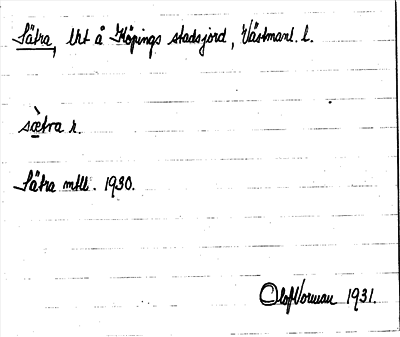 Sätra, lht å Köpings stadsjord, Västmanl. l.
sætra r.
Sätra mtll. 1930.
Olof Norman 1931.